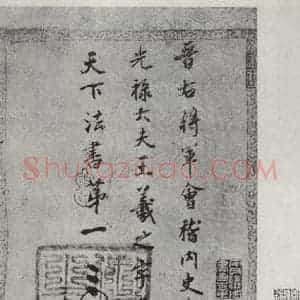 晉右將軍會稽內史
光祿大夫王羲之字
天下法書第一
Shufazidao.COM